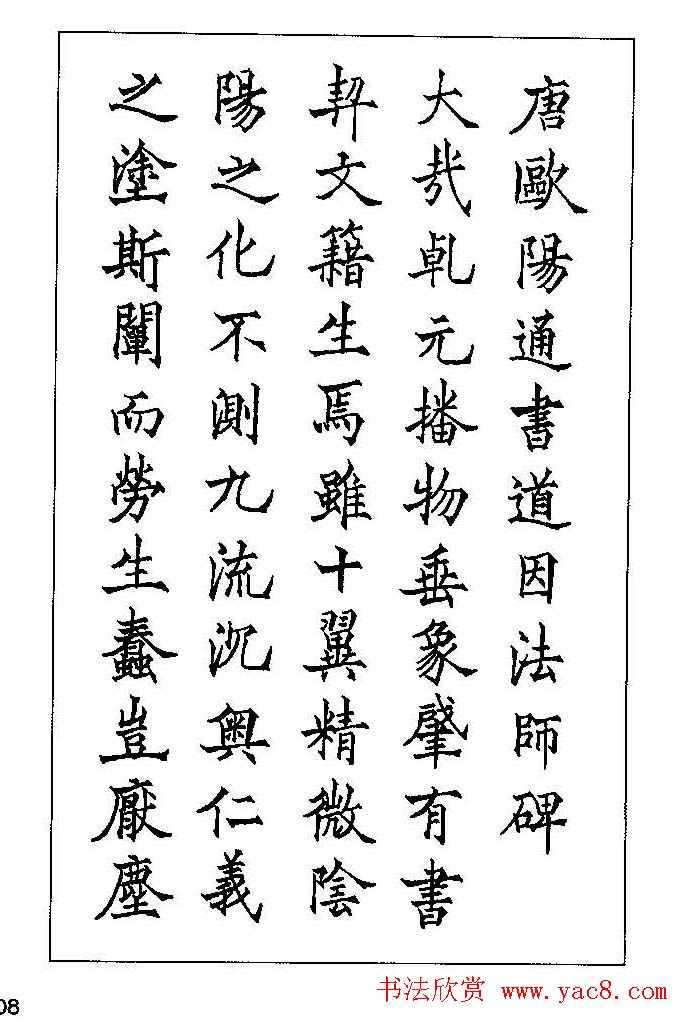 唐歐陽通書道因法師碑
大哉乹元播物垂象肇有書
契文籍生焉雖十翼精微陰
陽之化不測九流沉奥仁義
之塗斯闡而勞生蠢豈厭塵
08
书法欣赏 www.yac8.com